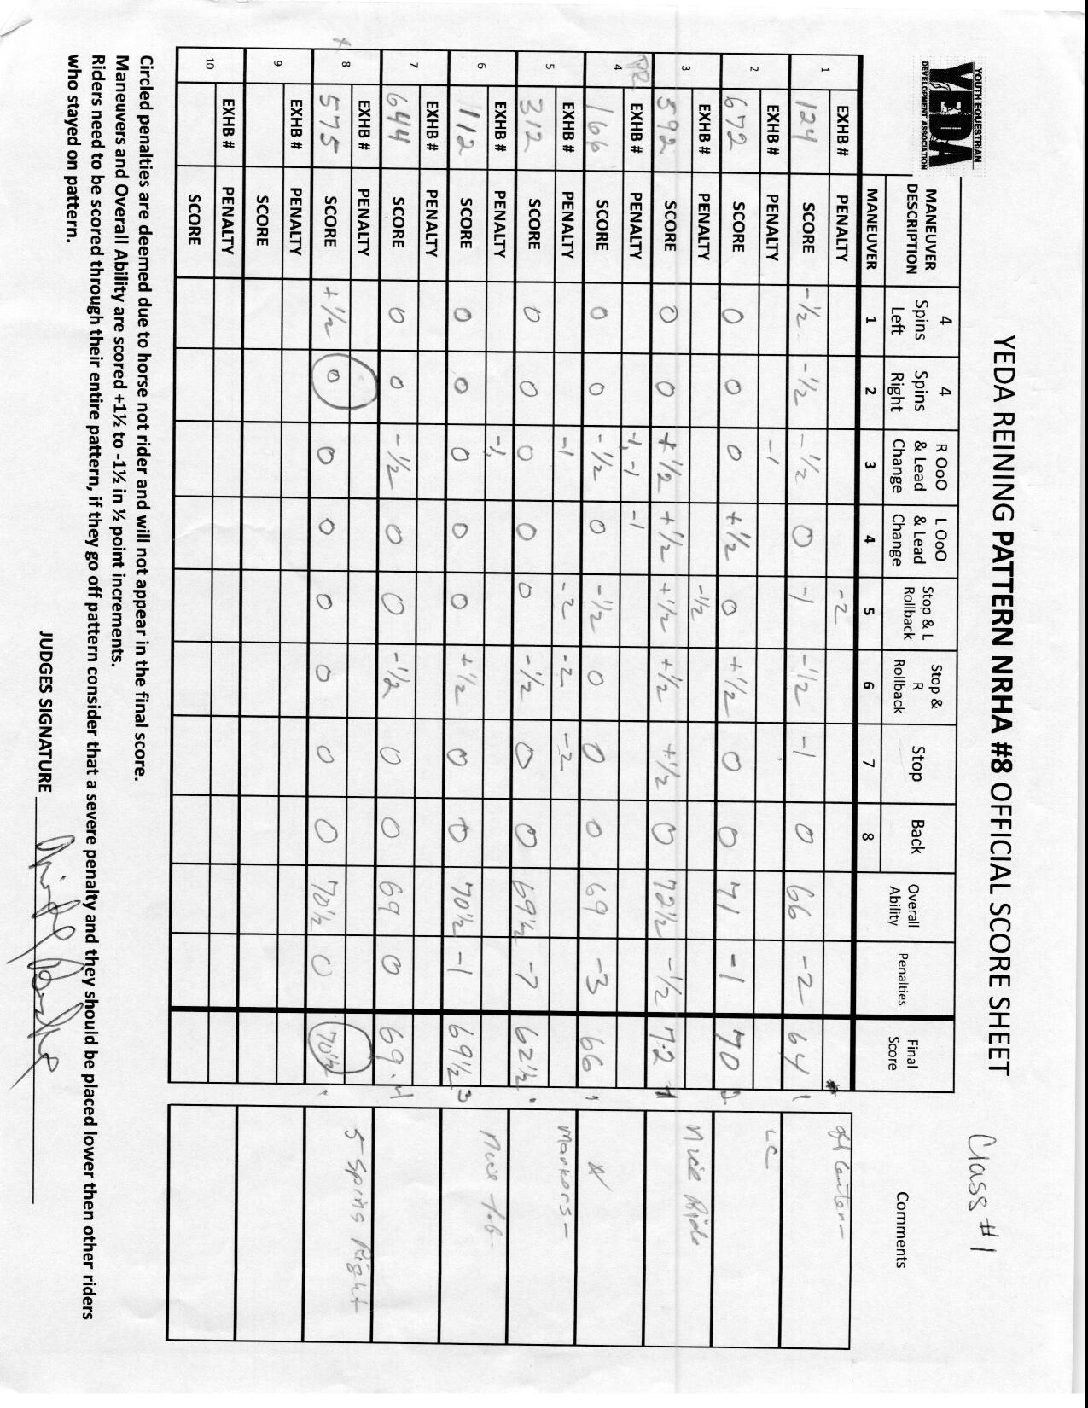 YOUTH EQUESTRIAN
YEDA
DEVELOPMENT ASSOCIATION
YEDA REINING PATTERN NRHA #8 OFFICIAL SCORE SHEET
Class #1
MANEUVER DESCRIPTION 4 Spins Left 4 Spins Right R OoO & Lead Change L OoO & Lead Change Stop & L Rollback Stop & R Rollback Stop Back Overall Ability Penalties Final Score Comments
MANEUVER 1 2 3 4 5 6 7 8
1 EXHB # PENALTY -2 off Center-
124 SCORE -½ -½ -½ 0 -1 -½ -1 0 66 -2 64
2 EXHB # PENALTY -1 LC
672 SCORE 0 0 0 +½ 0 +½ 0 0 71 -1 70 2
3 EXHB # PENALTY -½ Nice Ride
592 SCORE 0 0 +½ +½ +½ +½ +½ 0 72½ -½ 72 1
4 EXHB # PENALTY -1,-1 -1
166 SCORE 0 0 -½ 0 -½ 0 0 0 69 -3 66 X
5 EXHB # PENALTY -1 -2 -2 -2 Markers-
312 SCORE 0 0 0 0 0 -½ 0 0 69½ -7 62½
6 EXHB # PENALTY -1 Nice Job
112 SCORE 0 0 0 0 0 +½ 0 0 70½ -1 69½ 3
7 EXHB # PENALTY
644 SCORE 0 0 -½ 0 0 -½ 0 0 69 0 69 4
X
8 EXHB # PENALTY 5 Spins Right
575 SCORE +½ 0 0 0 0 0 0 0 70½ 0 70½
9 EXHB # PENALTY
SCORE
10 EXHB # PENALTY
SCORE
Circled penalties are deemed due to horse not rider and will not appear in the final score.
Maneuvers and Overall Ability are scored +1½ to -1½ in ½ point increments.
Riders need to be scored through their entire pattern, if they go off pattern consider that a severe penalty and they should be placed lower then other riders
who stayed on pattern.
JUDGES SIGNATURE